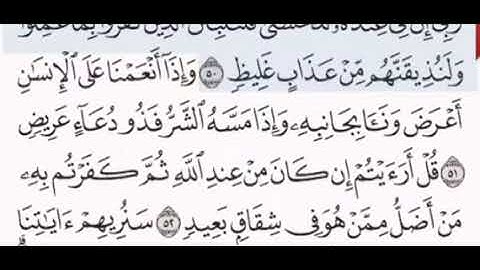 رَبِّىٓ إِنَّ لِى عِندَهُۥ لَلْحُسْنَىٰ فَلَنُنَبِّئَنَّ ٱلَّذِينَ كَفَرُوا۟ بِمَا عَمِلُوا۟
وَلَنُذِيقَنَّهُم مِّنْ عَذَابٍ غَلِيظٍ ٥٠ وَإِذَآ أَنْعَمْنَا عَلَى ٱلْإِنسَٰنِ
أَعْرَضَ وَنَـَٔا بِجَانِبِهِۦ وَإِذَا مَسَّهُ ٱلشَّرُّ فَذُو دُعَآءٍ عَرِيضٍ
٥١ قُلْ أَرَءَيْتُمْ إِن كَانَ مِنْ عِندِ ٱللَّهِ ثُمَّ كَفَرْتُم بِهِۦ
مَنْ أَضَلُّ مِمَّنْ هُوَ فِى شِقَاقٍۭ بَعِيدٍ ٥٢ سَنُرِيهِمْ ءَايَٰتِنَا